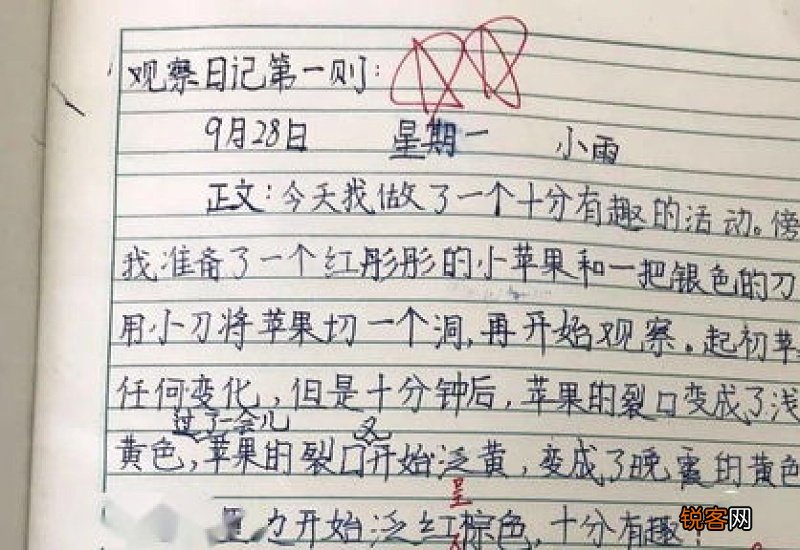 观察日记第一则:
9月28日 星期一 小雨
正文:今天我做了一个十分有趣的活动。傍
我准备了一个红彤彤的小苹果和一把银色的刀
用小刀将苹果切一个洞,再开始观察。起初苹
任何变化,但是十分钟后,苹果的裂口变成了浅
过了一会儿 又
黄色,苹果的裂口开始泛黄,变成了晚霞的黄色
呈
开始泛红棕色,十分有趣!
锐客网